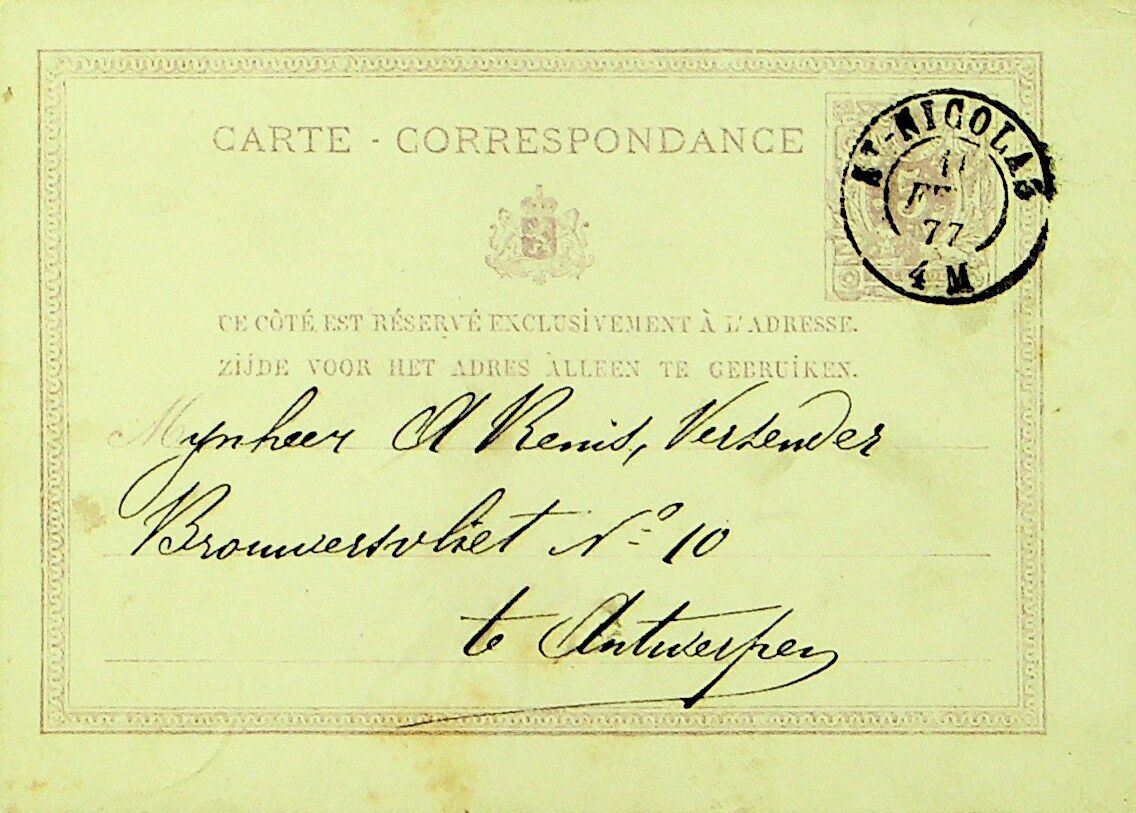 CARTE - CORRESPONDANCE
ST-NICOLAS
11
77
4 M
CE CÔTÉ EST RÉSERVÉ EXCLUSIVEMENT À L'ADRESSE.
ZIJDE VOOR HET ADRES ALLEEN TE GEBRUIKEN.
Mynheer A Renis, Verzender
Brouwersvliet Nº 10
te Antwerpen